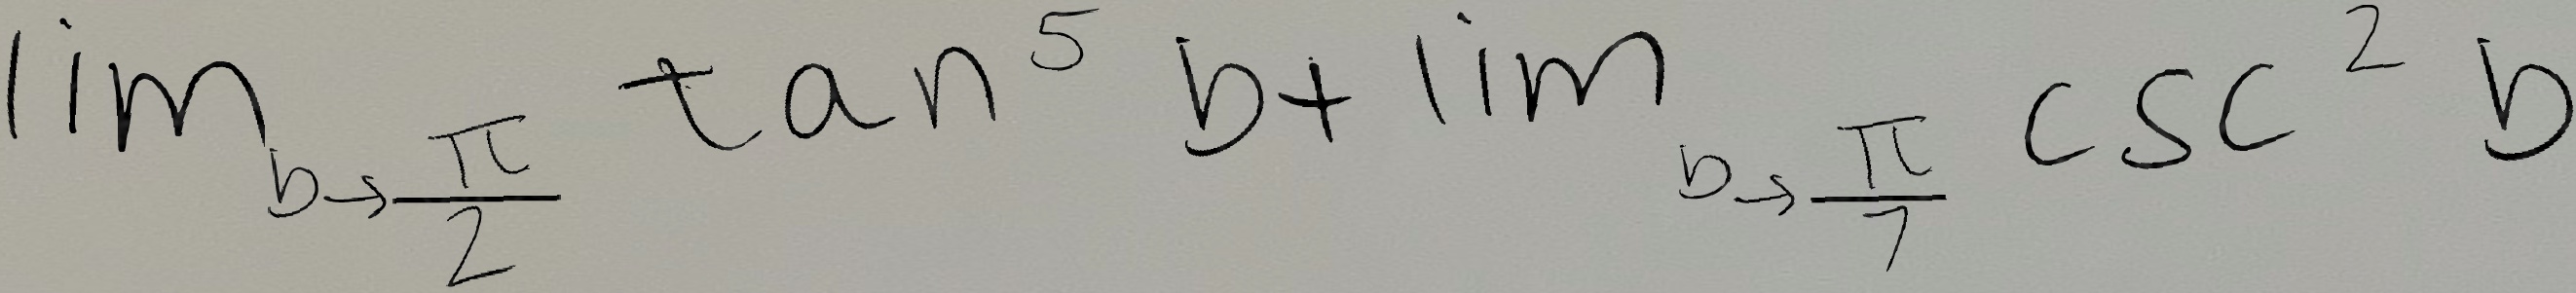 \lim_{b \to \frac{\pi}{2}} \tan^5 b + \lim_{b \to \frac{\pi}{7}} \csc^2 b